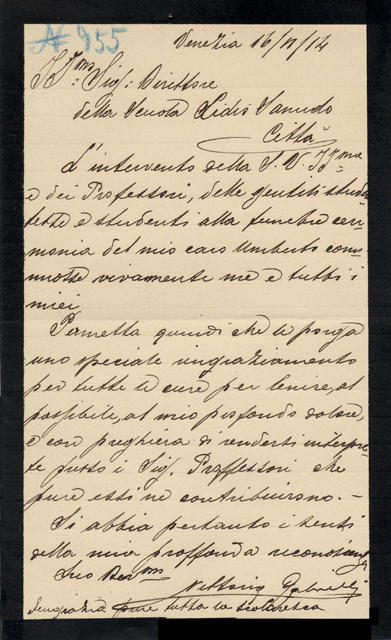 N 955
Venezia 16/11/14
Ill.mo Sig: Direttore
della Scuola Livio Sanudo
Città
L'intervento della S. V. Ill.ma
e dei Professori, delle gentili studen
tesse e studenti alla funebre ceri-
monia del mio caro Umberto com-
mosse vivamente me e tutti i
miei
Permetta quindi che le porga
uno speciale ringraziamento
per tutte le cure per lenire, al
possibile, al mio profondo dolore,
e con preghiera di rendersi interpre-
te presso i Sig. Proffessori che
pure essi ne contribuirono. -
Si abbia pertanto i sensi
della mia proffonda riconoscenza
Suo Dev.mo
Vettorio
ringrazia pure tutta la scolaresca